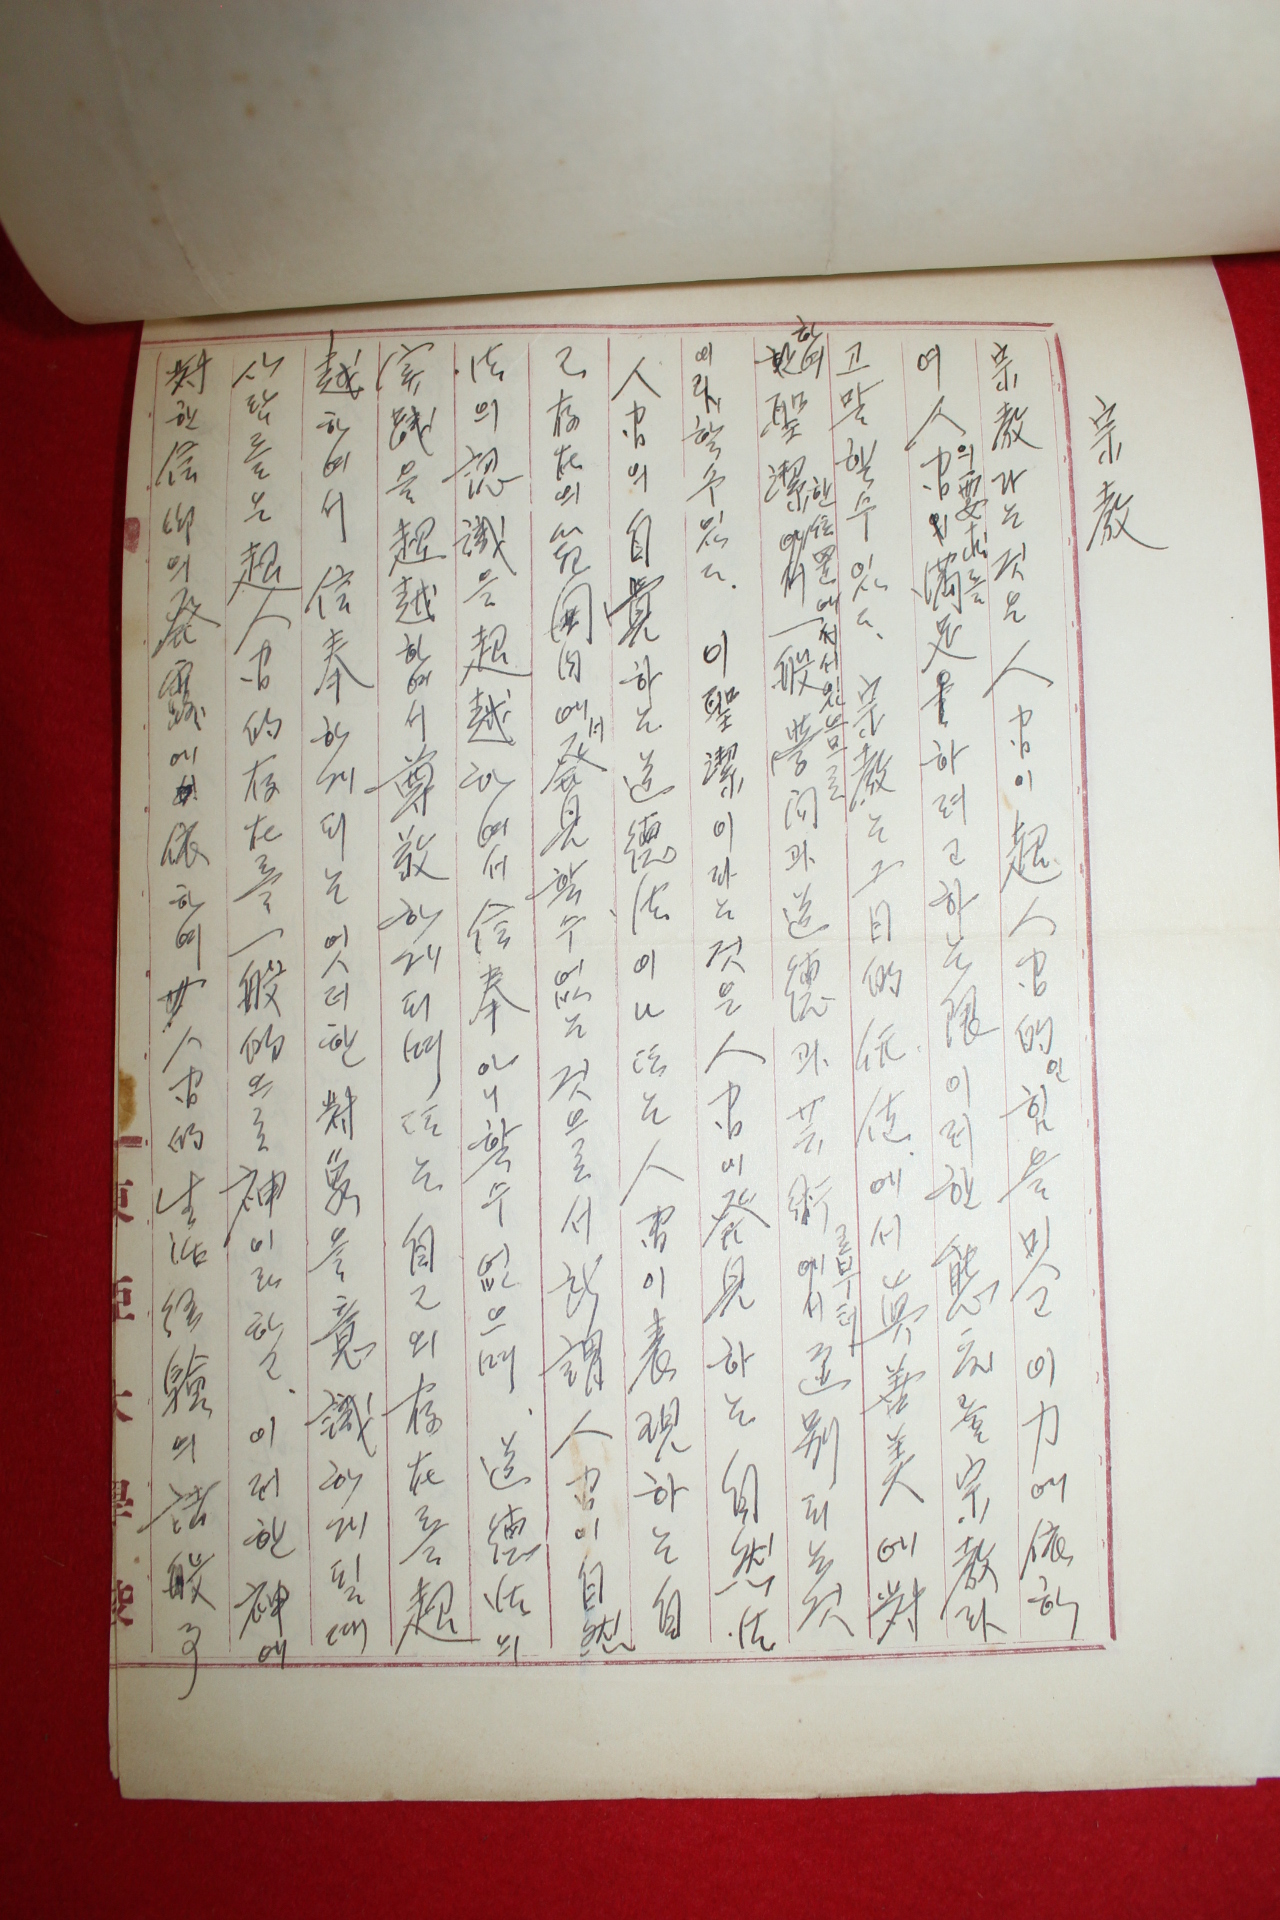 宗教
宗教라는것은 人間이 超人間的인 힘을 믿고 이力에依하
여 人間의要求를 滿足하려고하는 限 이러한 態度를 宗教라
고말할수있다. 宗教는 그目的 에서 真善美에對
한 聖潔한位置에서 一般學問과 道德과 芸術로부터 区別되는것
이라할수있다. 이聖潔이라는것은 人間이發見하는 自然法
人間의 自覺하는 道德法이나 또는 人間이表現하는 自
己存在의 範囲內에서 發見할수없는것으로서 所謂 人間이自然
法의 認識을 超越하여서 信奉아니할수 없으며. 道德法의
実践을 超越하여서 尊敬하게되며 또는 自己의 存在를 超
越하여서 信奉하게되는 엇더한 對象을 意識하게될때
사람들은 超人間的存在를 一般的으로 神이라함. 이러한 神에
對한 信仰의 發露에 依하여 人間的 生活經驗의 諸般
東亞大學校